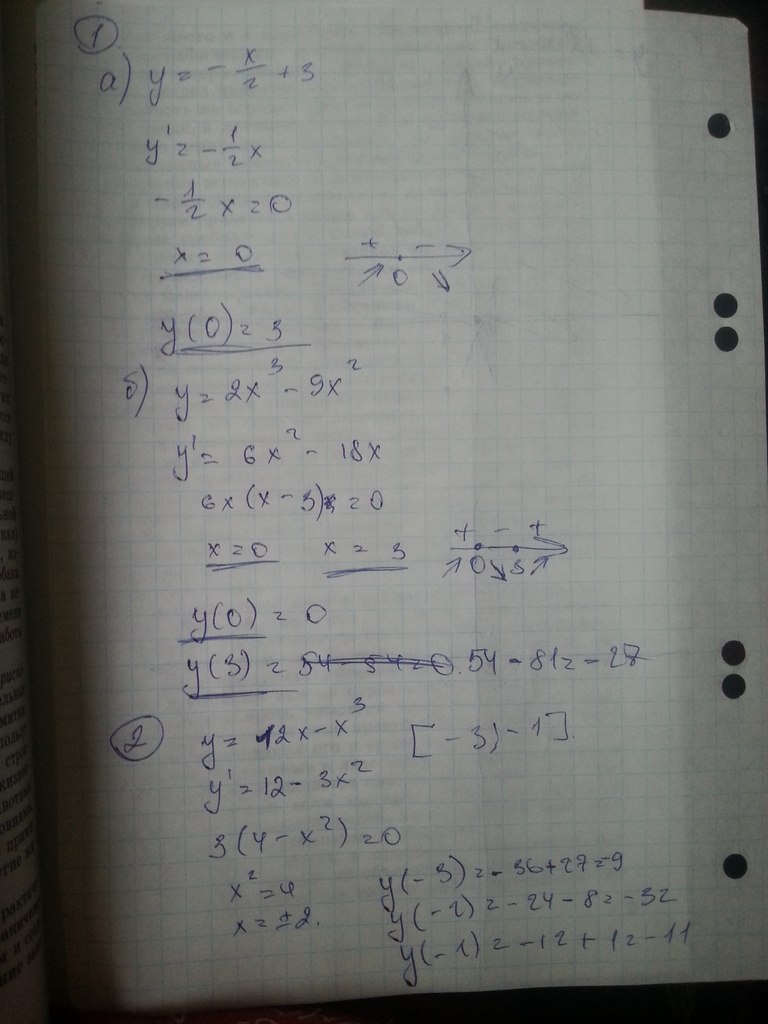 1
а) y = - x/2 + 3
y' = - 1/2 x
- 1/2 x = 0
x = 0
+ -
↗ 0 ↘
y(0) = 3
б) y = 2x³ - 9x²
y' = 6x² - 18x
6x(x - 3) = 0
x = 0 x = 3
+ - +
↗ 0 ↘ 3 ↗
y(0) = 0
y(3) = 54 - 54 = 0. 54 - 81 = - 27
2
y = 12x - x³ [-3; -1].
y' = 12 - 3x²
3(4 - x²) = 0
x² = 4
x = ±2.
y(-3) = - 36 + 27 = 9
y(-2) = - 24 - 8 = - 32
y(-1) = - 12 + 1 = - 11